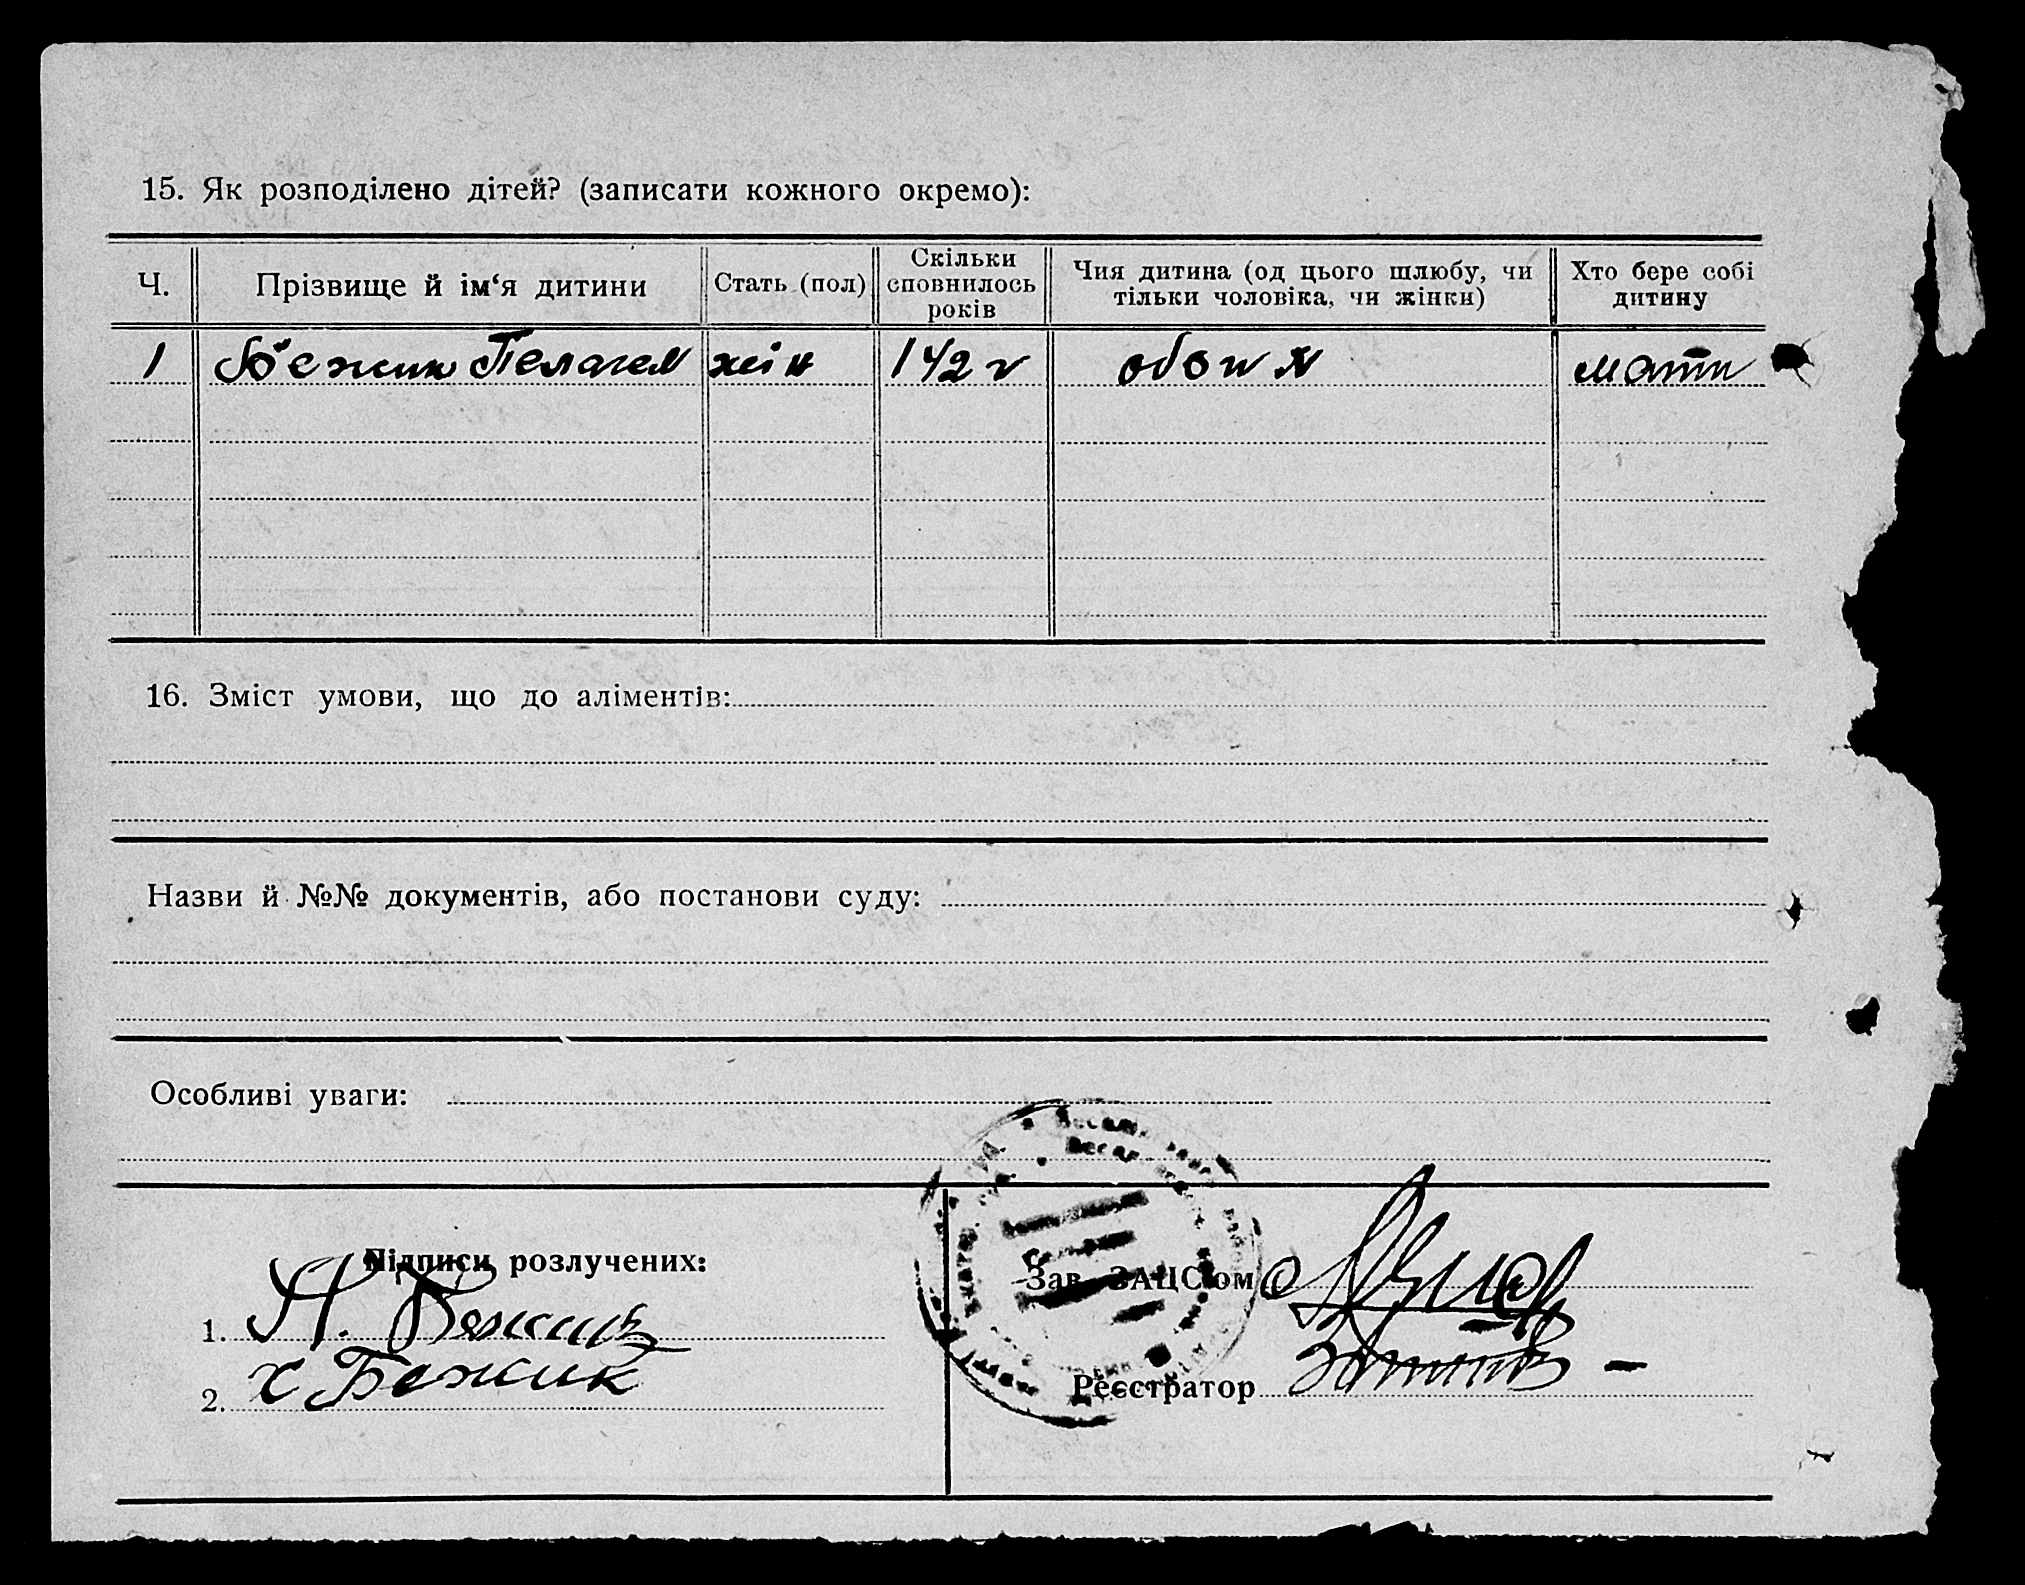 15. Як розподілено дітей? (записати кожного окремо):
Ч. Прізвище й ім‘я дитини Стать (пол) Скільки сповнилось років Чия дитина (од цього шлюбу, чи тільки чоловіка, чи жінки) Хто бере собі дитину
1 Бежик Пелагея жін 1 1/2 г обоих мати
16. Зміст умови, що до аліментів:
Назви й №№ документів, або постанови суду:
Особливі уваги:
Підписи розлучених:
1. Бежик
2. х Бежик
Зав. ЗАЦС'ом
Реєстратор